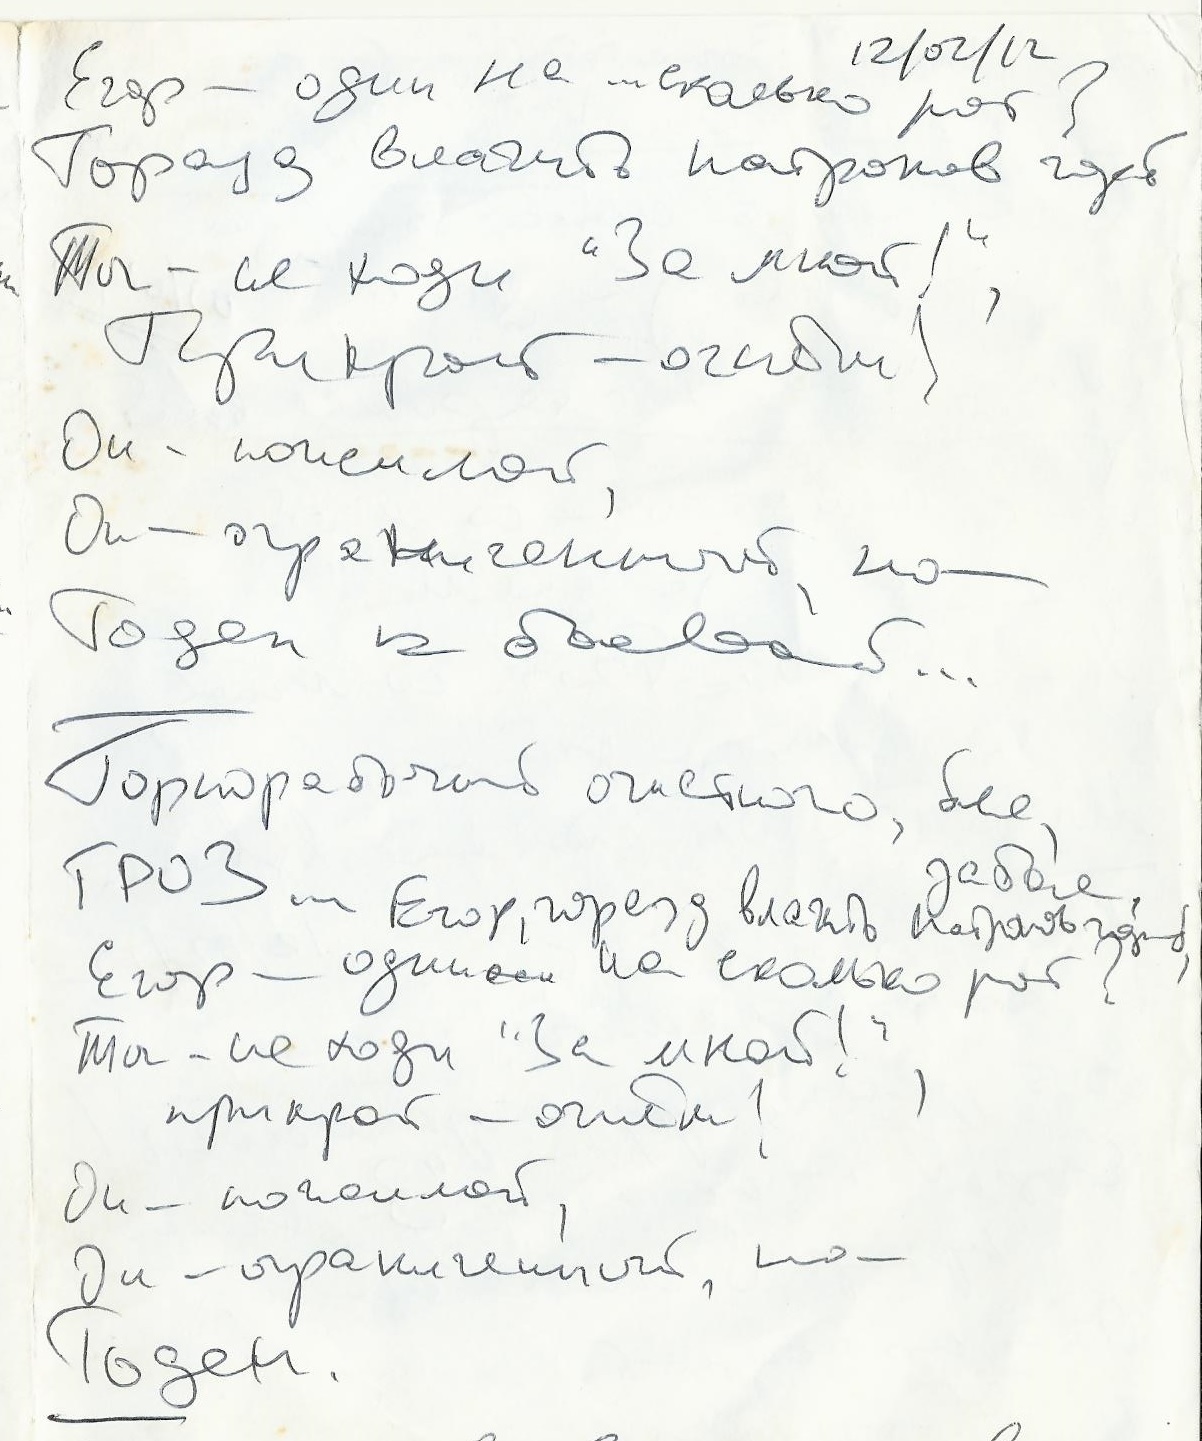 12/02/12
Егор — один на ... сколько рот?
Горазд влачить патронов
Ты - не ходи "За мной!",
Прикрой — огибни!
Он - пожилой,
Он — ограниченный, но —
Годен к боевой...
Горнорабочий очистного, бле,
ГРОЗ ... забоя,
Егор, горазд влачить патронов
Егор — один на сколько рот?
Ты - не ходи "За мной!",
прикрой —
Он — пожилой,
Он — ограниченный, но —
Годен.